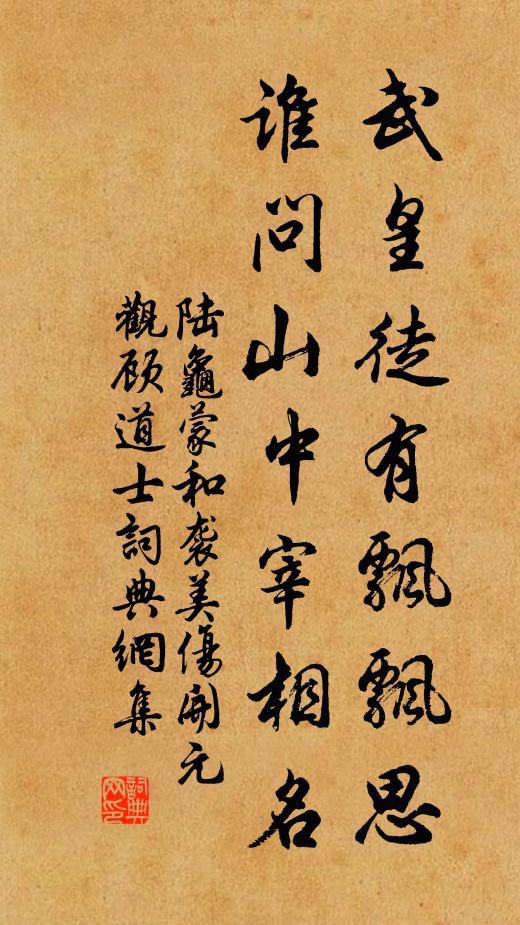 武皇徒有飄飄思
誰問山中宰相名
陸龜蒙和袭美傷開元
觀顾道士詞典網集
詞典网印